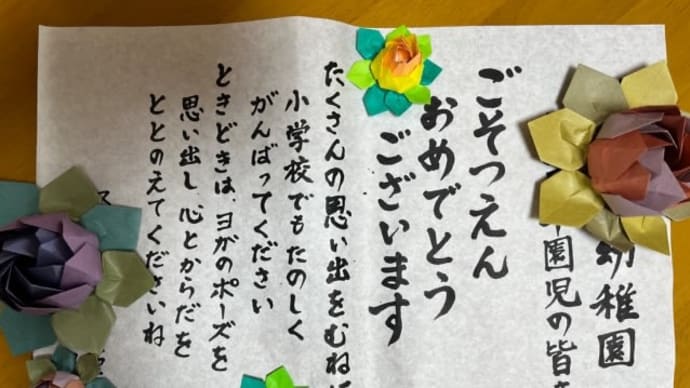 幼稚園
園児の皆
ごそつえん
おめでとう
ございます
たくさんの思い出をむねに
小学校でもたのしく
がんばってください
ときどきは、ヨガのポーズを
思い出し、心とからだを
ととのえてくださいね